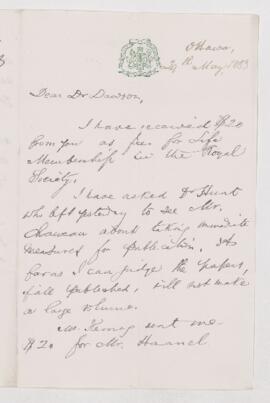 Ottawa,
May 1883
Dear Dr Dawson,
I have received $20
from you as fee for Life
Membership in the Royal
Society.
I have asked Dr Hunt
who left yesterday to see Mr.
Chauveau about taking immediate
measures for publication. As
far as I can judge the papers,
if all published, will not make
a large volume.
sent me
$20 for Mr. Haanel.